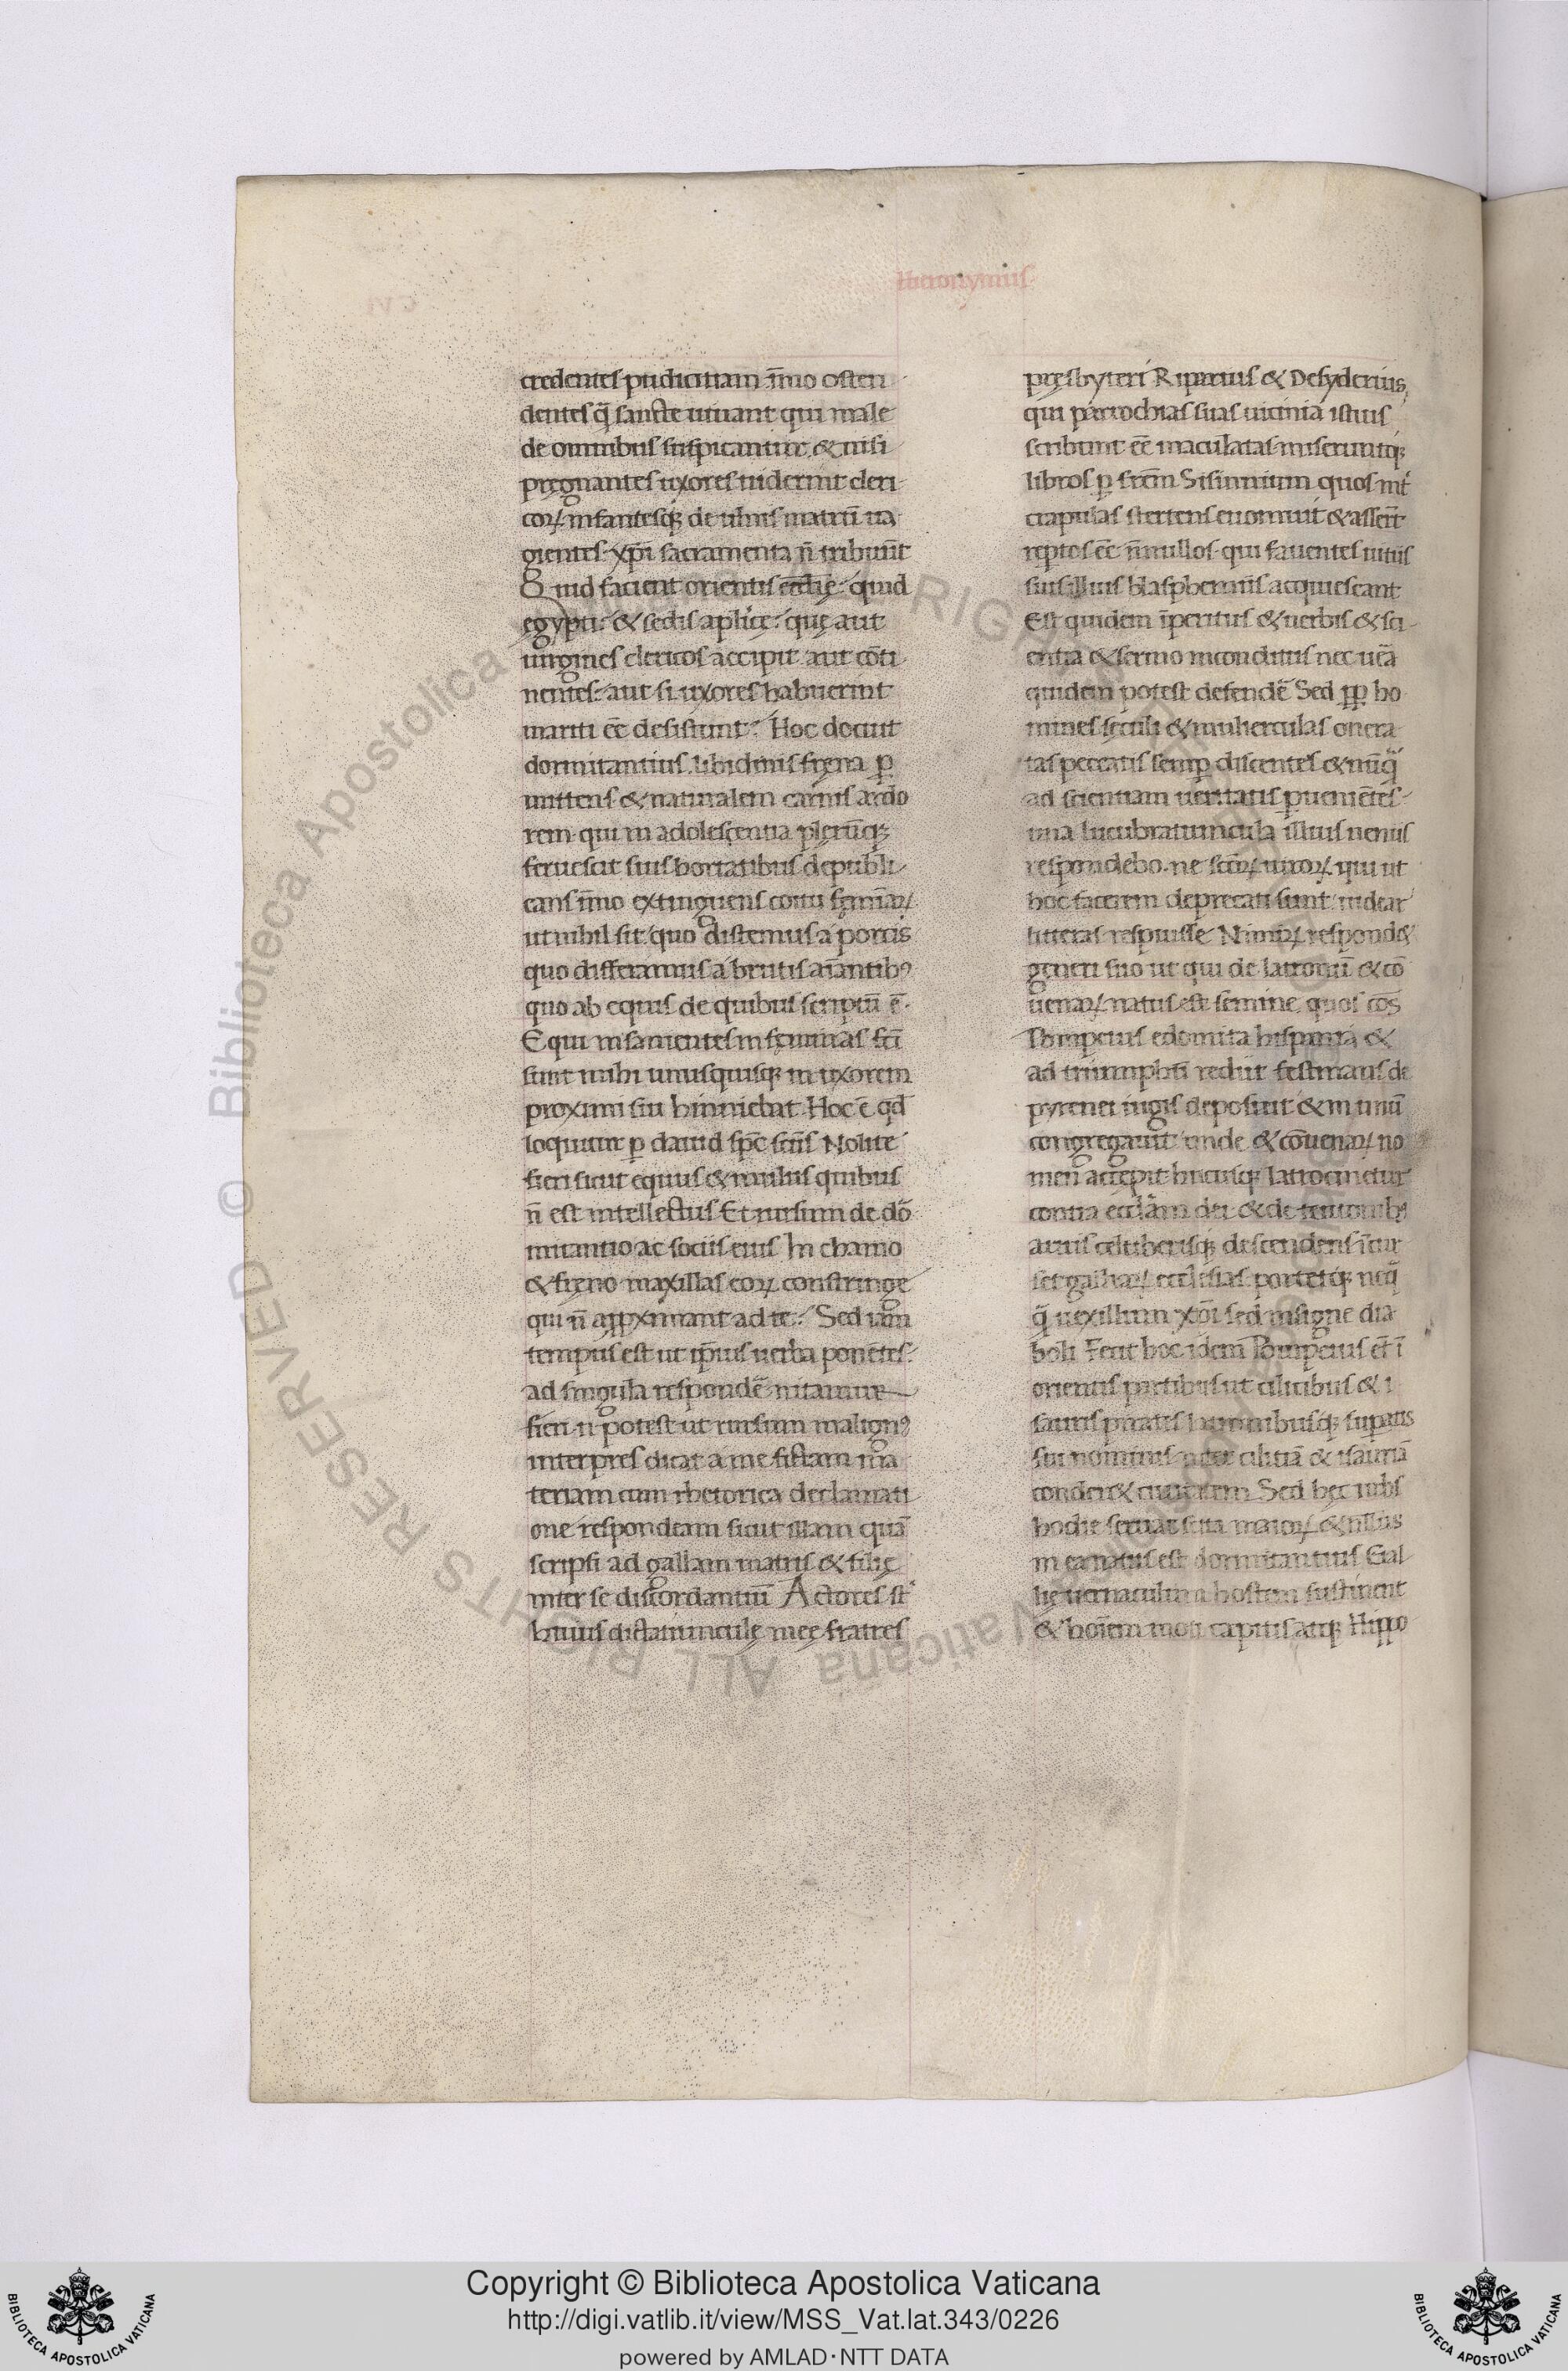 Hieronymus
credentes pudicitiam. īmo osten
dentes q̄ sancte uiuant qui male
de omnibus suspicantur. & nisi
pręgnantes uxores uiderint cleri
coꝝ. infantesq; de ulnis matrū ua
gientes. xp̄i sacramenta n̄ tribuūt
Quid facient orientis eccl̄ię? quid
egypti? & sedis apl̄icę? quę aut
uirgines clericos accipit. aut cōti
nentes: aut si uxores habuerint
mariti eē desistunt? Hoc docuit
dormitantius. libidinis fręna ꝑ
mittens & naturalem carnis ardo
rem. qui in adolescentia plerūq;
feruescit suis hortatibus dupli
cans. īmo extinguens coitu feminaꝝ
ut nihil sit quo distemus a porcis
quo differamus a brutis aīantibꝰ
quo ab equis de quibus scriptū ē.
Equi insanientes in feminas fcī
sunt mihi unusquisq; in uxorem
proximi sui hinniebat. Hoc ē qd̄
loquitur ꝑ dauid sp̄c scīs Nolite
fieri sicut equus & mulus quibus
n̄ est intellectus Et rursum de dor̄
mitantio ac sociis eius In chamo
& fręno maxillas eoꝝ constringe
qui n̄ approximant ad te. Sed iam
tempus est ut ip̄ius uerba ponētes.
ad singula respondē nitamur
fieri n̄ potest ut rursum malignꝰ
interpres dicat a me fictam ma
teriam cum rhetorica declamati
one respondeam sicut illam quā
scripsi ad gallam matris & filię
inter se discordantiū Actores st̄
huius dictatiunculę meę fratres
pręsbyteri Riparius & Desyderius,
qui parrochias suas uicinia istius
scribunt eē maculatas. miseruntq;
libros ꝑ frēm Sisinnium quos int̄
crapulas stertens euomuit & asser̄t
reptos eē n̄nullos. qui fauentes uitiis
suis illius blasphemiis acquiescant
Est quidem īperitus & uerbis & sci
entia & sermo inconditus nec uēa
quidem potest defendē Sed ꝓꝑ ho
mines sęculi & mulierculas onera
tas peccatis semꝑ discentes & nūq̄
ad scientiam ueritatis ꝑuenietēs
una lucubratiuncula illius neniis
respondebo. ne scōꝝ uiroꝝ. qui ut
hoc facerem deprecati sunt. uidear
litteras respuisse Nimiꝝ respondet
generi suo ut qui de latronū & co
uenaꝝ natus est semine. quos coñs
Pompeius edomita hispania &
ad triumphū rediit festinans de
pyrenei iugis deposuit & in unū
congregauit unde & cōuenaꝝ no
men accepit hucusq; latrocinetur
contra eccl̄iam dei & de
descendens īcur
set galliaꝝ eccl̄esias. portetq; neq̄
q̄ uexillum xp̄i sed insigne dia
boli Fecit hoc idem Pompeius et̄ ī
orientis partibus ut cilicibus & i
sauris piratis latronibusq; suꝑatis
sui nominis inter ciliciā & isauriā
conderet ciuitatem. Sed hęc urbs
hodie seruat scita maioꝝ. & nullus
in ea natus est dormitantius Gal
lię uernaculum hostem sustinent
& hoīem moti capitis atq; Hippo
© Biblioteca Apostolica Vaticana ALL RIGHTS RESERVED
Copyright © Biblioteca Apostolica Vaticana
http://digi.vatlib.it/view/MSS_Vat.lat.343/0226
powered by AMLAD·NTT DATA
BIBLIOTECA APOSTOLICA VATICANA
BIBLIOTECA APOSTOLICA VATICANA